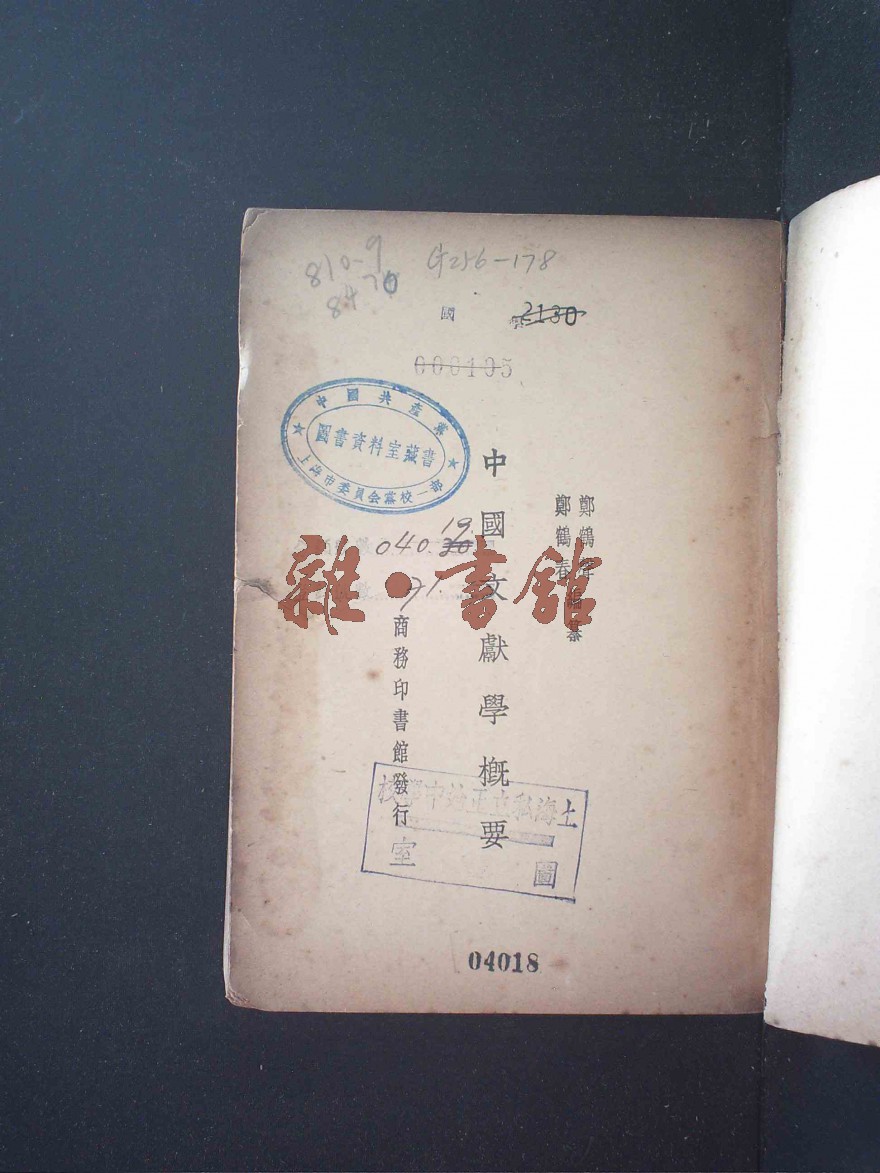 810-9
G256-178
國 學
2130
000105
中國共產黨
圖書資料室藏書
上海市委員會黨校一部
鄭鶴聲
鄭鶴春
編纂
中國文獻學概要
19
040.
71.
雜·書館
商務印書館發行
上海私立正
中學校
圖
室
04018